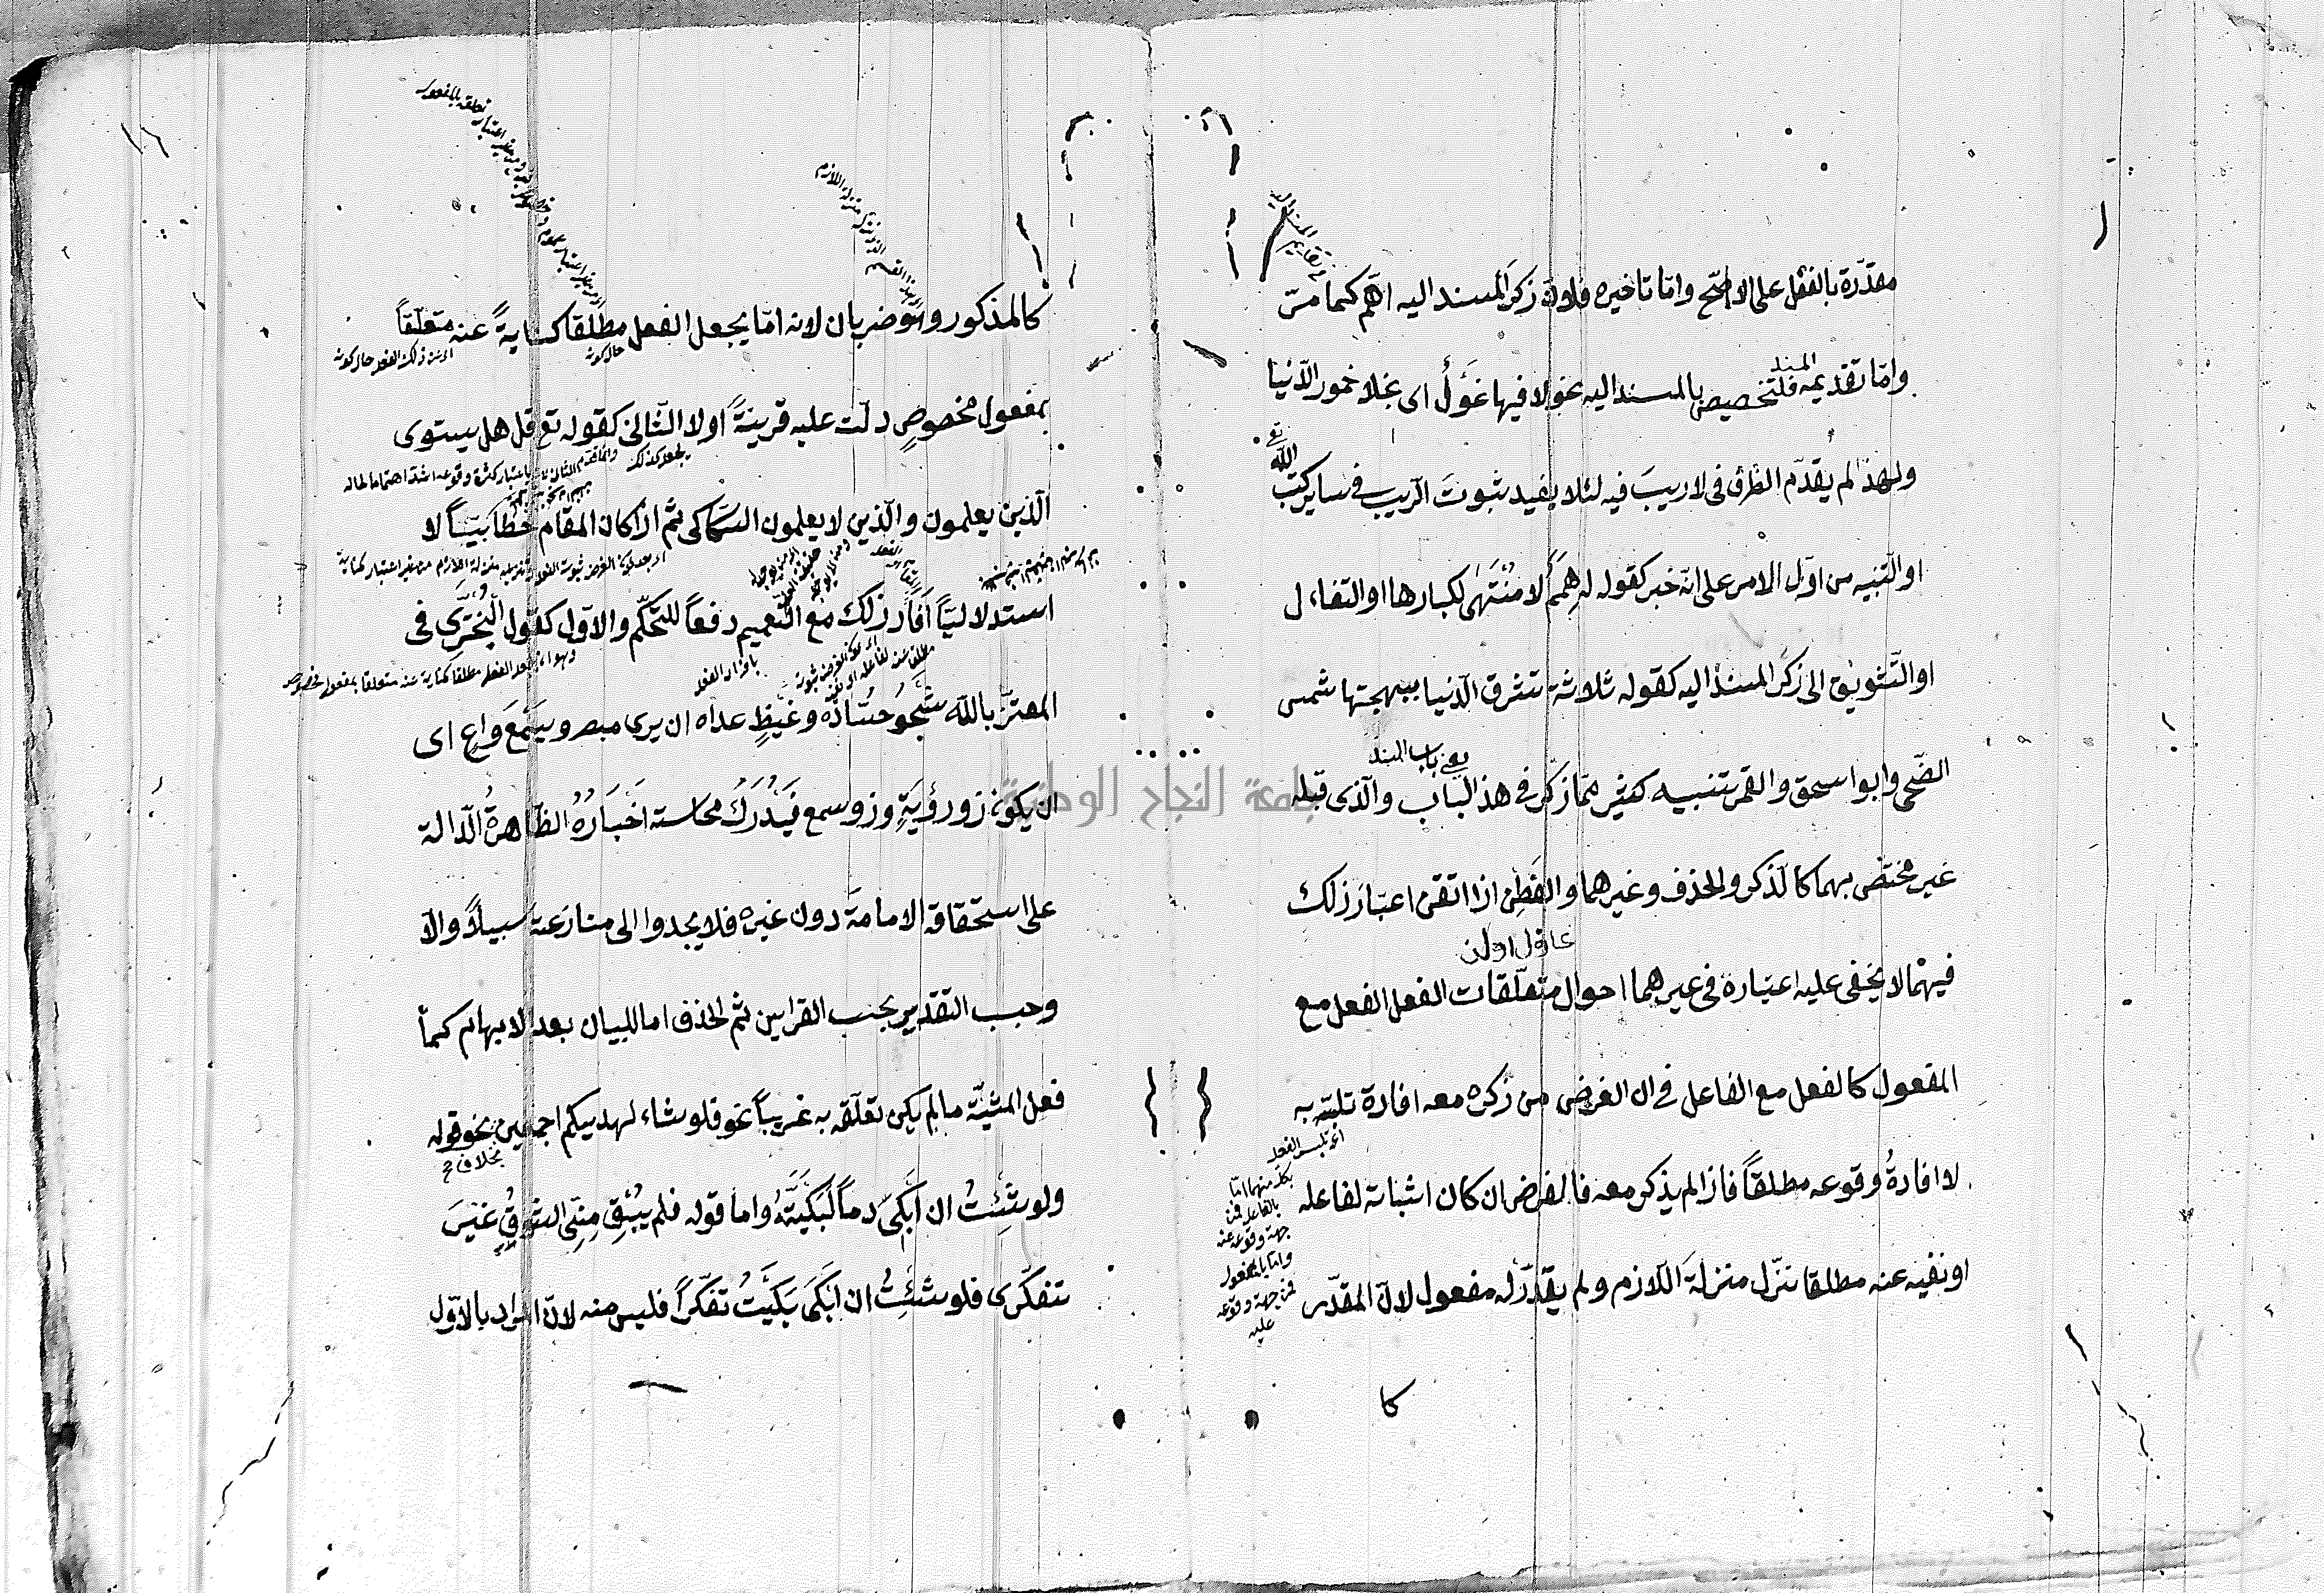 مقدّرة بالفعل على الاصّح وامّا تاخيره فلانّ ذكر المسند اليه اهمّ كما مرّ
وامّا تقديمه فلتخصيص بالمسند اليه نحو لا فيها غَوْلٌ اى بخلاف خمور الدّنيا
المسند
ولهذا لم يقدّم الظرف فى لا ريبَ فيه لئلا يفيد ثبوتَ الرّيب فى ساير كتب
الله تع
او التّنبيه من اوّل الامر على انّه خبر كقوله له هِمَمٌ لا مُنْتَهَى لكبارها او التفاءل
او التّشويق الى ذكر المسند اليه كقوله ثلاثة تشرق الدّنيا ببهجتها شمس
الضّحى وابو اسحق والقمر تنبيه كثير ممّا ذكر فى هذا الباب والّذى قبله
يعنى باب المسند
غير مختصّ بهما كالذّكر والحذف وغيرهما والفَطِن اذا اتقن اعتبار ذلك
فيهما لا يخفى عليه اعتباره فى غيرهما احوال متعلّقات الفعل الفعل مع
المفعول كالفعل مع الفاعل فى ان الغرض من ذكره معه افادة تلبّسه به
اى تلبس الفعل
بكل منهما امّا
بالفاعل فمن
جهة وقوعه عنه
واما بالمفعول
فمن جهة وقوعه
عليه
لا افادةُ وقوعه مطلقاً فاذا لم يذكر معه فالغرض ان كان اثباته لفاعله
او نفيه عنه مطلقا نزّل منزلةَ اللازم ولم يقدّر له مفعول لانّ المقدّر
كا
١٦
كالمذكور وهو ضربان لانه امّا يجعل الفعل مطلقا كنايةً عنه متعلّقاً
حال كونه
بمفعول مخصوصٍ دلّت عليه قرينةً اولا الثّانى كقوله تع قل هل يستوى
الّذين يعلمون والّذين لا يعلمون السّكاكى ثم اذا كان المقام خطابيّاً لا
استدلاليّاً اَفاد ذلك مع التّعميم دفعاً للتحكّم والاوّل كقول البُحْتُرِى فى
وهو ان يجعل الفعل مطلقا كناية عنه متعلقا بمفعول مخصوص
المعتزّ بالله شَجْوُ حُسّاده وغَيْظٍ عداه ان يرى مبصر ويَسْمَعَ وَاعٍ اى
ان يكون ذو رؤيةٍ وذو سمع فَيُدْرَكَ محاسنه اَخْبَارُهُ الظّاهرةُ الدّالة
على استحقاقه الامامةَ دون غيره فلا يجدوا الى منازعته سبيلاً والّا
وجب التقدير بحسب القراين ثم الحذف اما للبيان بعد الابهام كما
فعل المشيّة ما لم يكن تعلّقه به غريباً نحو فلو شاء لهديكم اجمعين نحو قوله
بخلاف
ولو شِئْتُ ان اَبْكِىَ دماً لَبَكَيْتُهُ واما قوله فلم يُبْقِ مِنِّى الشوقُ غَيْرَ
تفكّرى فلو شِئْتُ ان اَبْكِىَ بَكَيْتُ تفكّراً فليس منه لانّ المراد بالاوّل
جامعة النجاح الوطنية